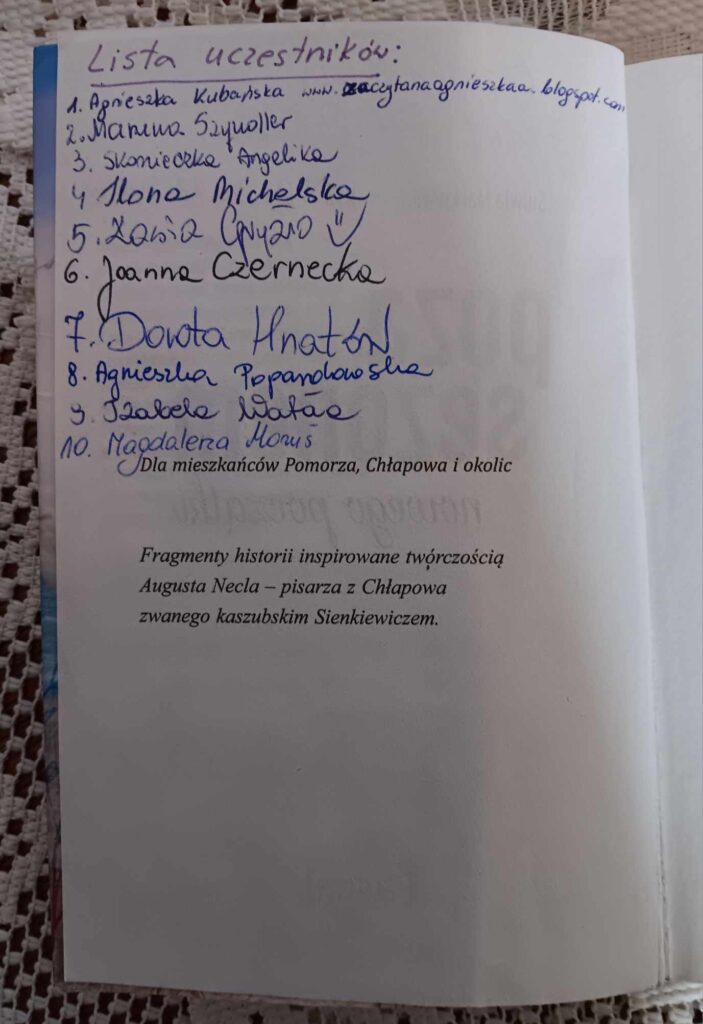 Lista uczestników:
1. Agnieszka Kubańska www.zaczytanaagnieszkaa.blogspot.com
2. Marzena
3. Skonieczka Angelika
4 Ilona Michalska
5.
6. Joanna Czernecka
7. Dorota Hnatów
8. Agnieszka Popandowska
9. Izabela Wątła
10. Magdalena
Dla mieszkańców Pomorza, Chłapowa i okolic
Fragmenty historii inspirowane twórczością
Augusta Necla – pisarza z Chłapowa
zwanego kaszubskim Sienkiewiczem.